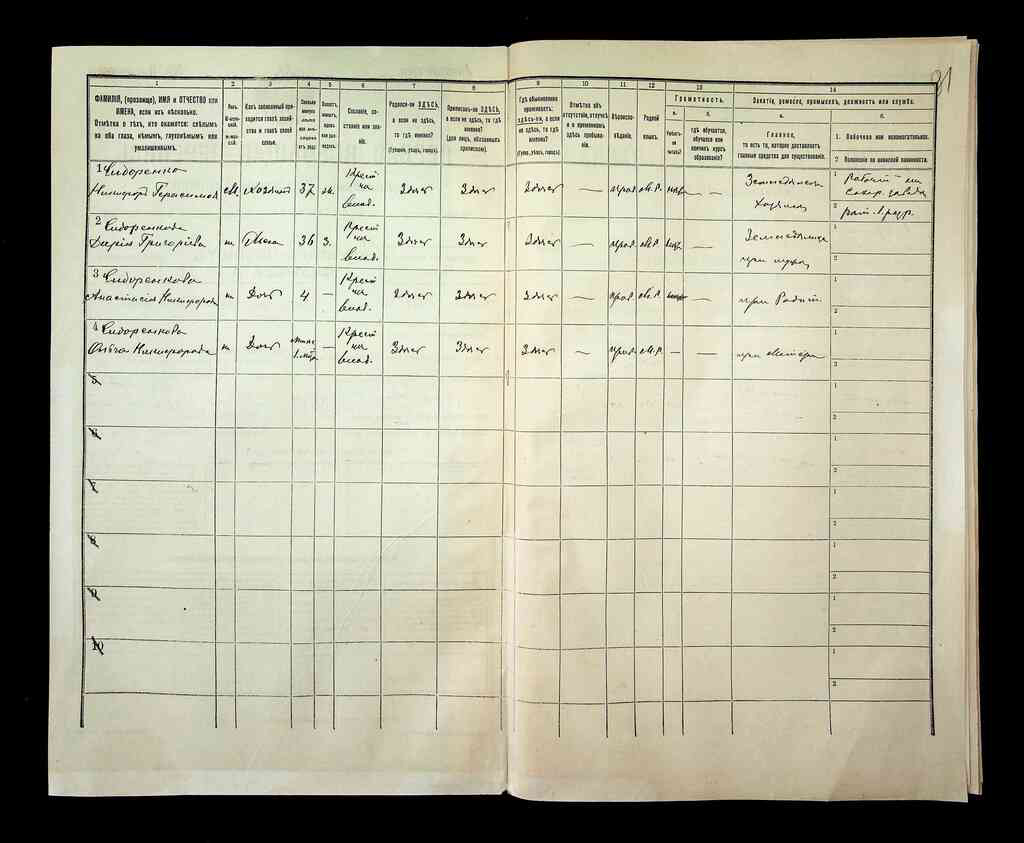 91
1 2 3 4 5 6 7 8 9 10 11 12 13 14
ФАМИЛІЯ, (прозвище), ИМЯ и ОТЧЕСТВО или
ИМЕНА, если ихъ нѣсколько.
Отмѣтка о тѣхъ, кто окажется: слѣпымъ
на оба глаза, нѣмымъ, глухонѣмымъ или
умалишеннымъ.
Полъ.
М-муж-
ской.
Ж-жен-
ской.
Какъ записанный при-
ходится главѣ хозяй-
ства и главѣ своей
семьи.
Сколько
минуло
лѣтъ
Холостъ,
женатъ,
вдовъ
или раз-
веденъ.
Сословіе, со-
стояніе или зва-
ніе.
Родился-ли ЗДѢСЬ,
а если не здѣсь,
то гдѣ именно?
(Губернія, уѣздъ, городъ).
Приписанъ-ли ЗДѢСЬ,
а если не здѣсь, то гдѣ
именно?
(Для лицъ, обязанныхъ
припискою).
Гдѣ обыкновенно
проживаетъ:
здѣсь-ли, а если
не здѣсь, то гдѣ
именно?
(Губер., уѣздъ, городъ)
Отмѣтка объ
отсутствіи, отлучкѣ
и о временномъ
здѣсь пребыва-
ніи.
Вѣроиспо-
вѣданіе.
Родной
языкъ.
Грамотность.
а.
Умѣетъ-
ли
читать?
б.
гдѣ обучается,
обучался или
кончилъ курсъ
образованія?
Занятіе, ремесло, промыселъ, должность или служба.
а.
Главное,
то есть то, которое доставляетъ
главныя средства для существованія.
б.
1. Побочное или вспомогательное.
2 Положеніе по воинской повинности.
1 Сидоренко
Никифоръ Герасимовъ М. Хозяинъ 37 ж. Крест
на
влад. Здѣсь Здѣсь Здѣсь — прав. м.р. — Земледѣлецъ
Хозяинъ
1 Рабочій на
сахар. заводѣ
2
2 Сидоренкова
Дарія Григорiева ж Жена 36 з. Крест
на
влад. Здѣсь Здѣсь Здѣсь — прав м.р — Земледѣлица
при мужѣ
1
2
3 Сидоренкова
Анастасія Никифорова ж Дочь 4 — Крест
на
влад. Здѣсь Здѣсь Здѣсь — прав. м.р. —
1
2
4 Сидоренкова
Ольга Никифорова ж Дочь — Крест
на
влад. Здѣсь Здѣсь Здѣсь — прав. м.р. — — при матери
1
2
5 1
2
6 1
2
7 1
2
8 1
2
9 1
2
10 1
2